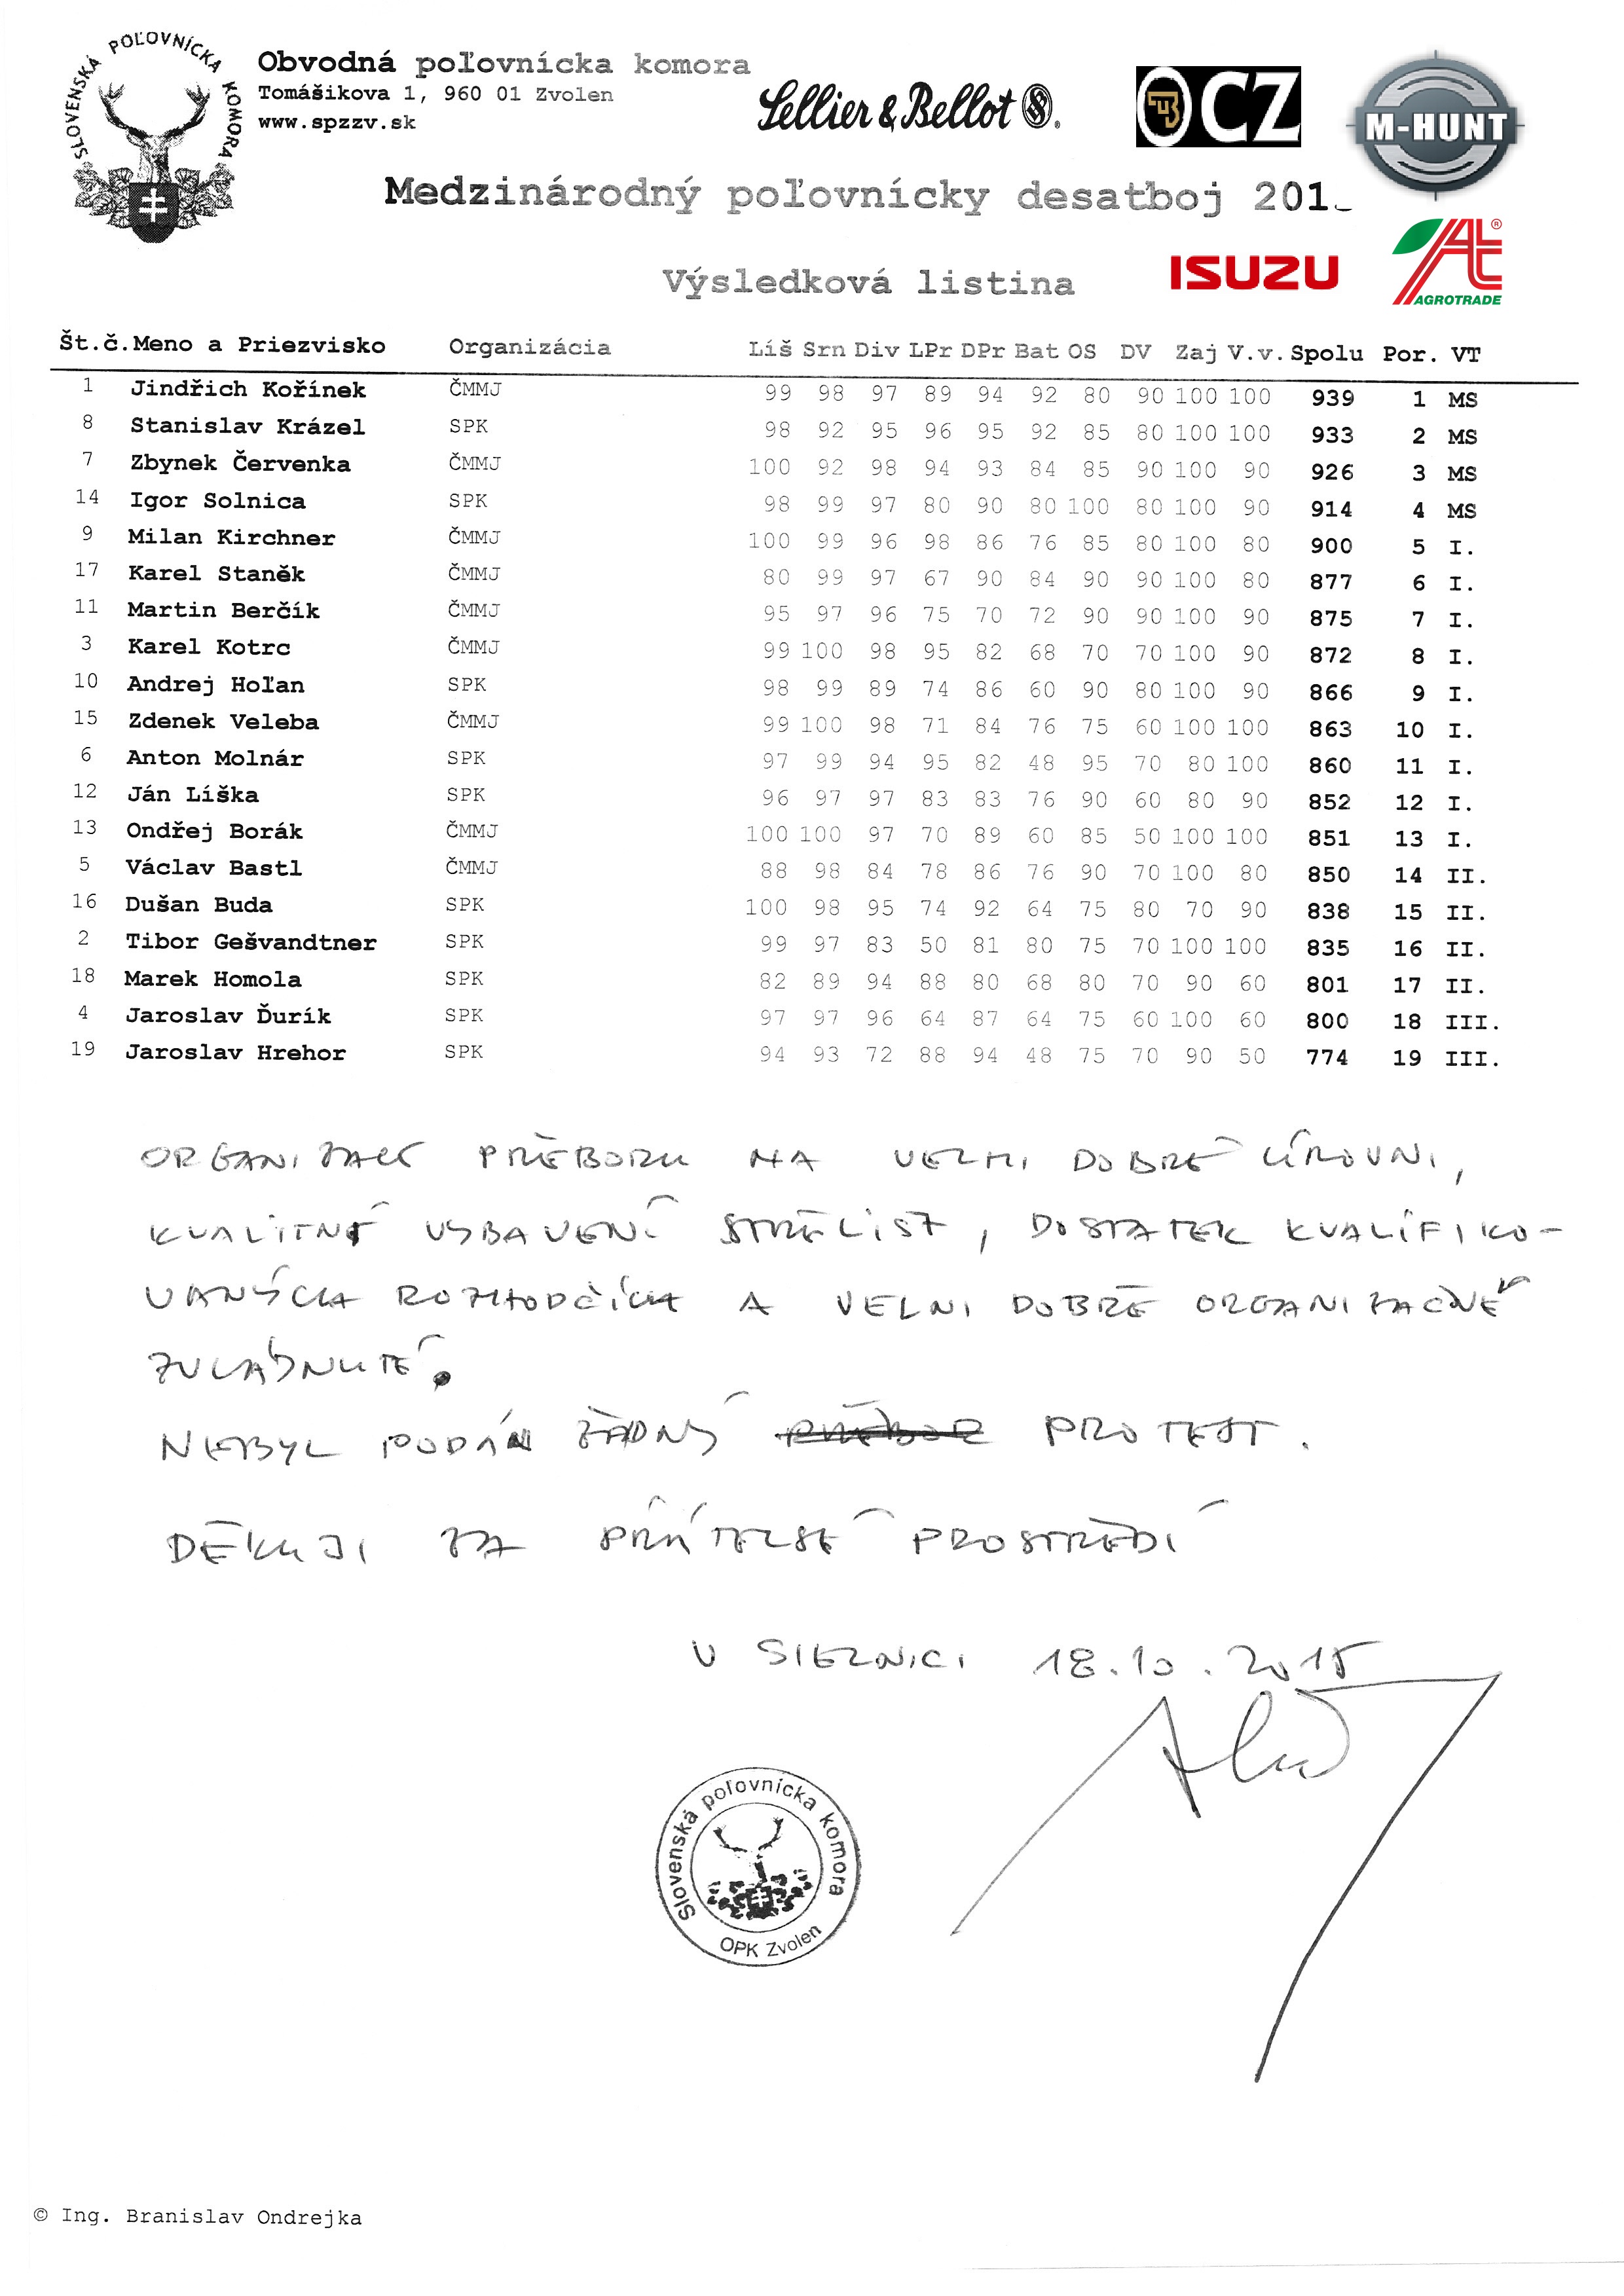 SLOVENSKÁ POĽOVNÍCKA KOMORA
Obvodná poľovnícka komora
Tomášikova 1, 960 01 Zvolen
www.spzzv.sk
Sellier & Bellot
CZ
M-HUNT
Medzinárodný poľovnícky desaťboj 201
Výsledková listina
ISUZU
AGROTRADE
Št.č. Meno a Priezvisko Organizácia Líš Srn Div LPr DPr Bat OS DV Zaj V.v. Spolu Por. VT
1 Jindřich Kořínek ČMMJ 99 98 97 89 94 92 80 90 100 100 939 1 MS
8 Stanislav Krázel SPK 98 92 95 96 95 92 85 80 100 100 933 2 MS
7 Zbynek Červenka ČMMJ 100 92 98 94 93 84 85 90 100 90 926 3 MS
14 Igor Solnica SPK 98 99 97 80 90 80 100 80 100 90 914 4 MS
9 Milan Kirchner ČMMJ 100 99 96 98 86 76 85 80 100 80 900 5 I.
17 Karel Staněk ČMMJ 80 99 97 67 90 84 90 90 100 80 877 6 I.
11 Martin Berčík ČMMJ 95 97 96 75 70 72 90 90 100 90 875 7 I.
3 Karel Kotrc ČMMJ 99 100 98 95 82 68 70 70 100 90 872 8 I.
10 Andrej Hoľan SPK 98 99 89 74 86 60 90 80 100 90 866 9 I.
15 Zdenek Veleba ČMMJ 99 100 98 71 84 76 75 60 100 100 863 10 I.
6 Anton Molnár SPK 97 99 94 95 82 48 95 70 80 100 860 11 I.
12 Ján Líška SPK 96 97 97 83 83 76 90 60 80 90 852 12 I.
13 Ondřej Borák ČMMJ 100 100 97 70 89 60 85 50 100 100 851 13 I.
5 Václav Bastl ČMMJ 88 98 84 78 86 76 90 70 100 80 850 14 II.
16 Dušan Buda SPK 100 98 95 74 92 64 75 80 70 90 838 15 II.
2 Tibor Gešvandtner SPK 99 97 83 50 81 80 75 70 100 100 835 16 II.
18 Marek Homola SPK 82 89 94 88 80 68 80 70 90 60 801 17 II.
4 Jaroslav Ďurík SPK 97 97 96 64 87 64 75 60 100 60 800 18 III.
19 Jaroslav Hrehor SPK 94 93 72 88 94 48 75 70 90 50 774 19 III.
ORGANIZACE PŘEBORU NA VELMI DOBRÉ ÚROVNI,
KVALITNÍ VYBAVENÍ STŘELIŠŤ, DOSTATEK KVALIFIKO-
VANÝCH ROZHODČÍCH A VELMI DOBŘE ORGANIZAČNĚ
ZVLÁDNUTÉ.
NEBYL PODÁN ŽÁDNÝ PROTEST.
DĚKUJI ZA PŘÁTELSÉ PROSTŘEDÍ
V SIELNICI 18.10.2015
Slovenská poľovnícka komora
OPK Zvolen
© Ing. Branislav Ondrejka